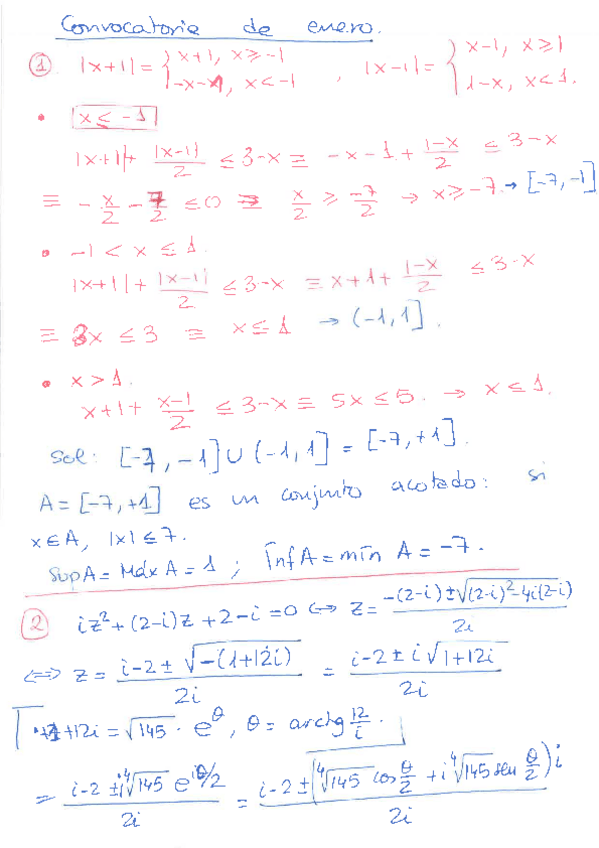 Convocatoria de enero.
① |x+1| = { x+1, x ≥ -1 ; -x-1, x < -1 , |x-1| = { x-1, x ≥ 1 ; 1-x, x < 1.
• x ≤ -1
|x+1| + |x-1|/2 ≤ 3-x ≡ -x-1 + (1-x)/2 ≤ 3-x
≡ -x/2 - 7/2 ≤ 0 ≡ x/2 ≥ -7/2 → x ≥ -7. → [-7, -1]
• -1 < x ≤ 1.
|x+1| + |x-1|/2 ≤ 3-x ≡ x+1 + (1-x)/2 ≤ 3-x
≡ 3x ≤ 3 ≡ x ≤ 1 → (-1, 1].
• x > 1.
x+1 + (x-1)/2 ≤ 3-x ≡ 5x ≤ 5. → x ≤ 1.
Sol: [-7, -1] ∪ (-1, 1] = [-7, +1].
A = [-7, +1] es un conjunto acotado: si
x ∈ A, |x| ≤ 7.
Sup A = Máx A = 1 ; Ínf A = mín A = -7.
② iz² + (2-i)z + 2-i = 0 ⟺ z = (-(2-i) ± √((2-i)² - 4i(2-i)))/2i
⟺ z = (i-2 ± √(-(1+12i)))/2i = (i-2 ± i√(1+12i))/2i
1+12i = √145 · e^θ, θ = arctg 12/i.
= (i-2 ± i ⁴√145 e^(iθ/2))/2i = (i-2 ± (⁴√145 cos θ/2 + i ⁴√145 sen θ/2) i)/2i